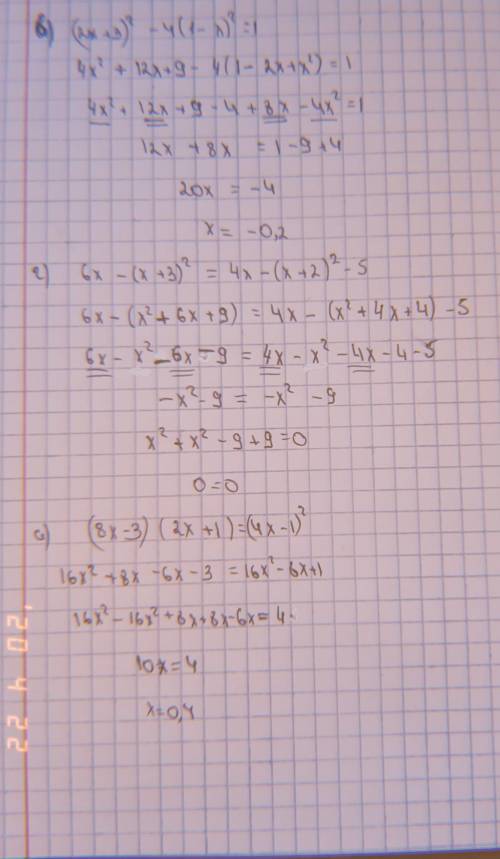 б) (2x+3)² - 4(1-x)² = 1
4x² + 12x + 9 - 4(1 - 2x + x²) = 1
4x² + 12x + 9 - 4 + 8x - 4x² = 1
12x + 8x = 1 - 9 + 4
20x = -4
x = -0,2
г) 6x - (x+3)² = 4x - (x+2)² - 5
6x - (x² + 6x + 9) = 4x - (x² + 4x + 4) - 5
6x - x² - 6x - 9 = 4x - x² - 4x - 4 - 5
-x² - 9 = -x² - 9
x² + x² - 9 + 9 = 0
0 = 0
c) (8x-3)(2x+1) = (4x-1)²
16x² + 8x - 6x - 3 = 16x² - 8x + 1
16x² - 16x² + 8x + 8x - 6x = 4
10x = 4
x = 0,4
22 4 '02